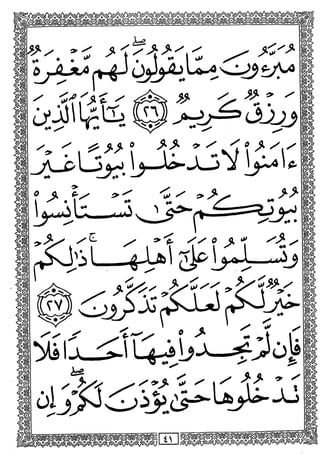 مُبَرَّءُونَ مِمَّا يَقُولُونَ ۖ لَهُم مَّغْفِرَةٌ
وَرِزْقٌ كَرِيمٌ ٢٦ يَٰٓأَيُّهَا ٱلَّذِينَ
ءَامَنُوا۟ لَا تَدْخُلُوا۟ بُيُوتًا غَيْرَ
بُيُوتِكُمْ حَتَّىٰ تَسْتَأْنِسُوا۟
وَتُسَلِّمُوا۟ عَلَىٰٓ أَهْلِهَا ۚ ذَٰلِكُمْ
خَيْرٌ لَّكُمْ لَعَلَّكُمْ تَذَكَّرُونَ ٢٧
فَإِن لَّمْ تَجِدُوا۟ فِيهَآ أَحَدًا فَلَا
تَدْخُلُوهَا حَتَّىٰ يُؤْذَنَ لَكُمْ ۖ وَإِن
٤١